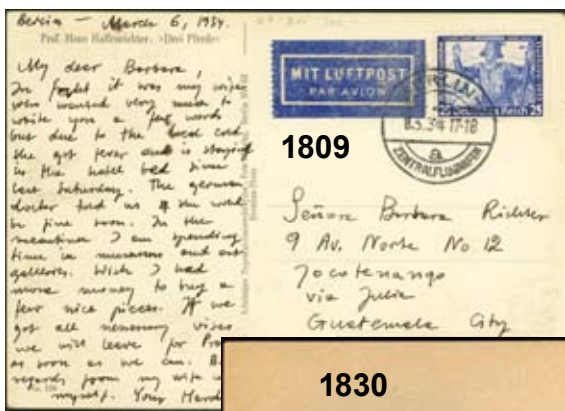 Berlin – March 6, 1934.
Prof. Hans Haffenrichter: »Drei Pferde«
My dear Barbara,
In fact it was my wife
who wanted very much to
write you a few words
but due to the bad cold
she got fever and is staying
in the hotel bed since
last Saturday. The german
doctor told us she will
be fine soon. In the
meantime I am spending
time in museums and art
galleries. Wish I had
more money to buy a
few nice pieces. If we
get all necessary vises
we will leave for
as soon as we can.
regards from my wife
myself. Your
MIT LUFTPOST
PAR AVION
BERLIN
6.3.34 17-18
ZENTRALFLUGHAFEN
Deutsches Reich 25
1809
Señora Barbara Richter
9 Av. Norte No 12
Jocotenango
via Julia
Guatemala City
1830